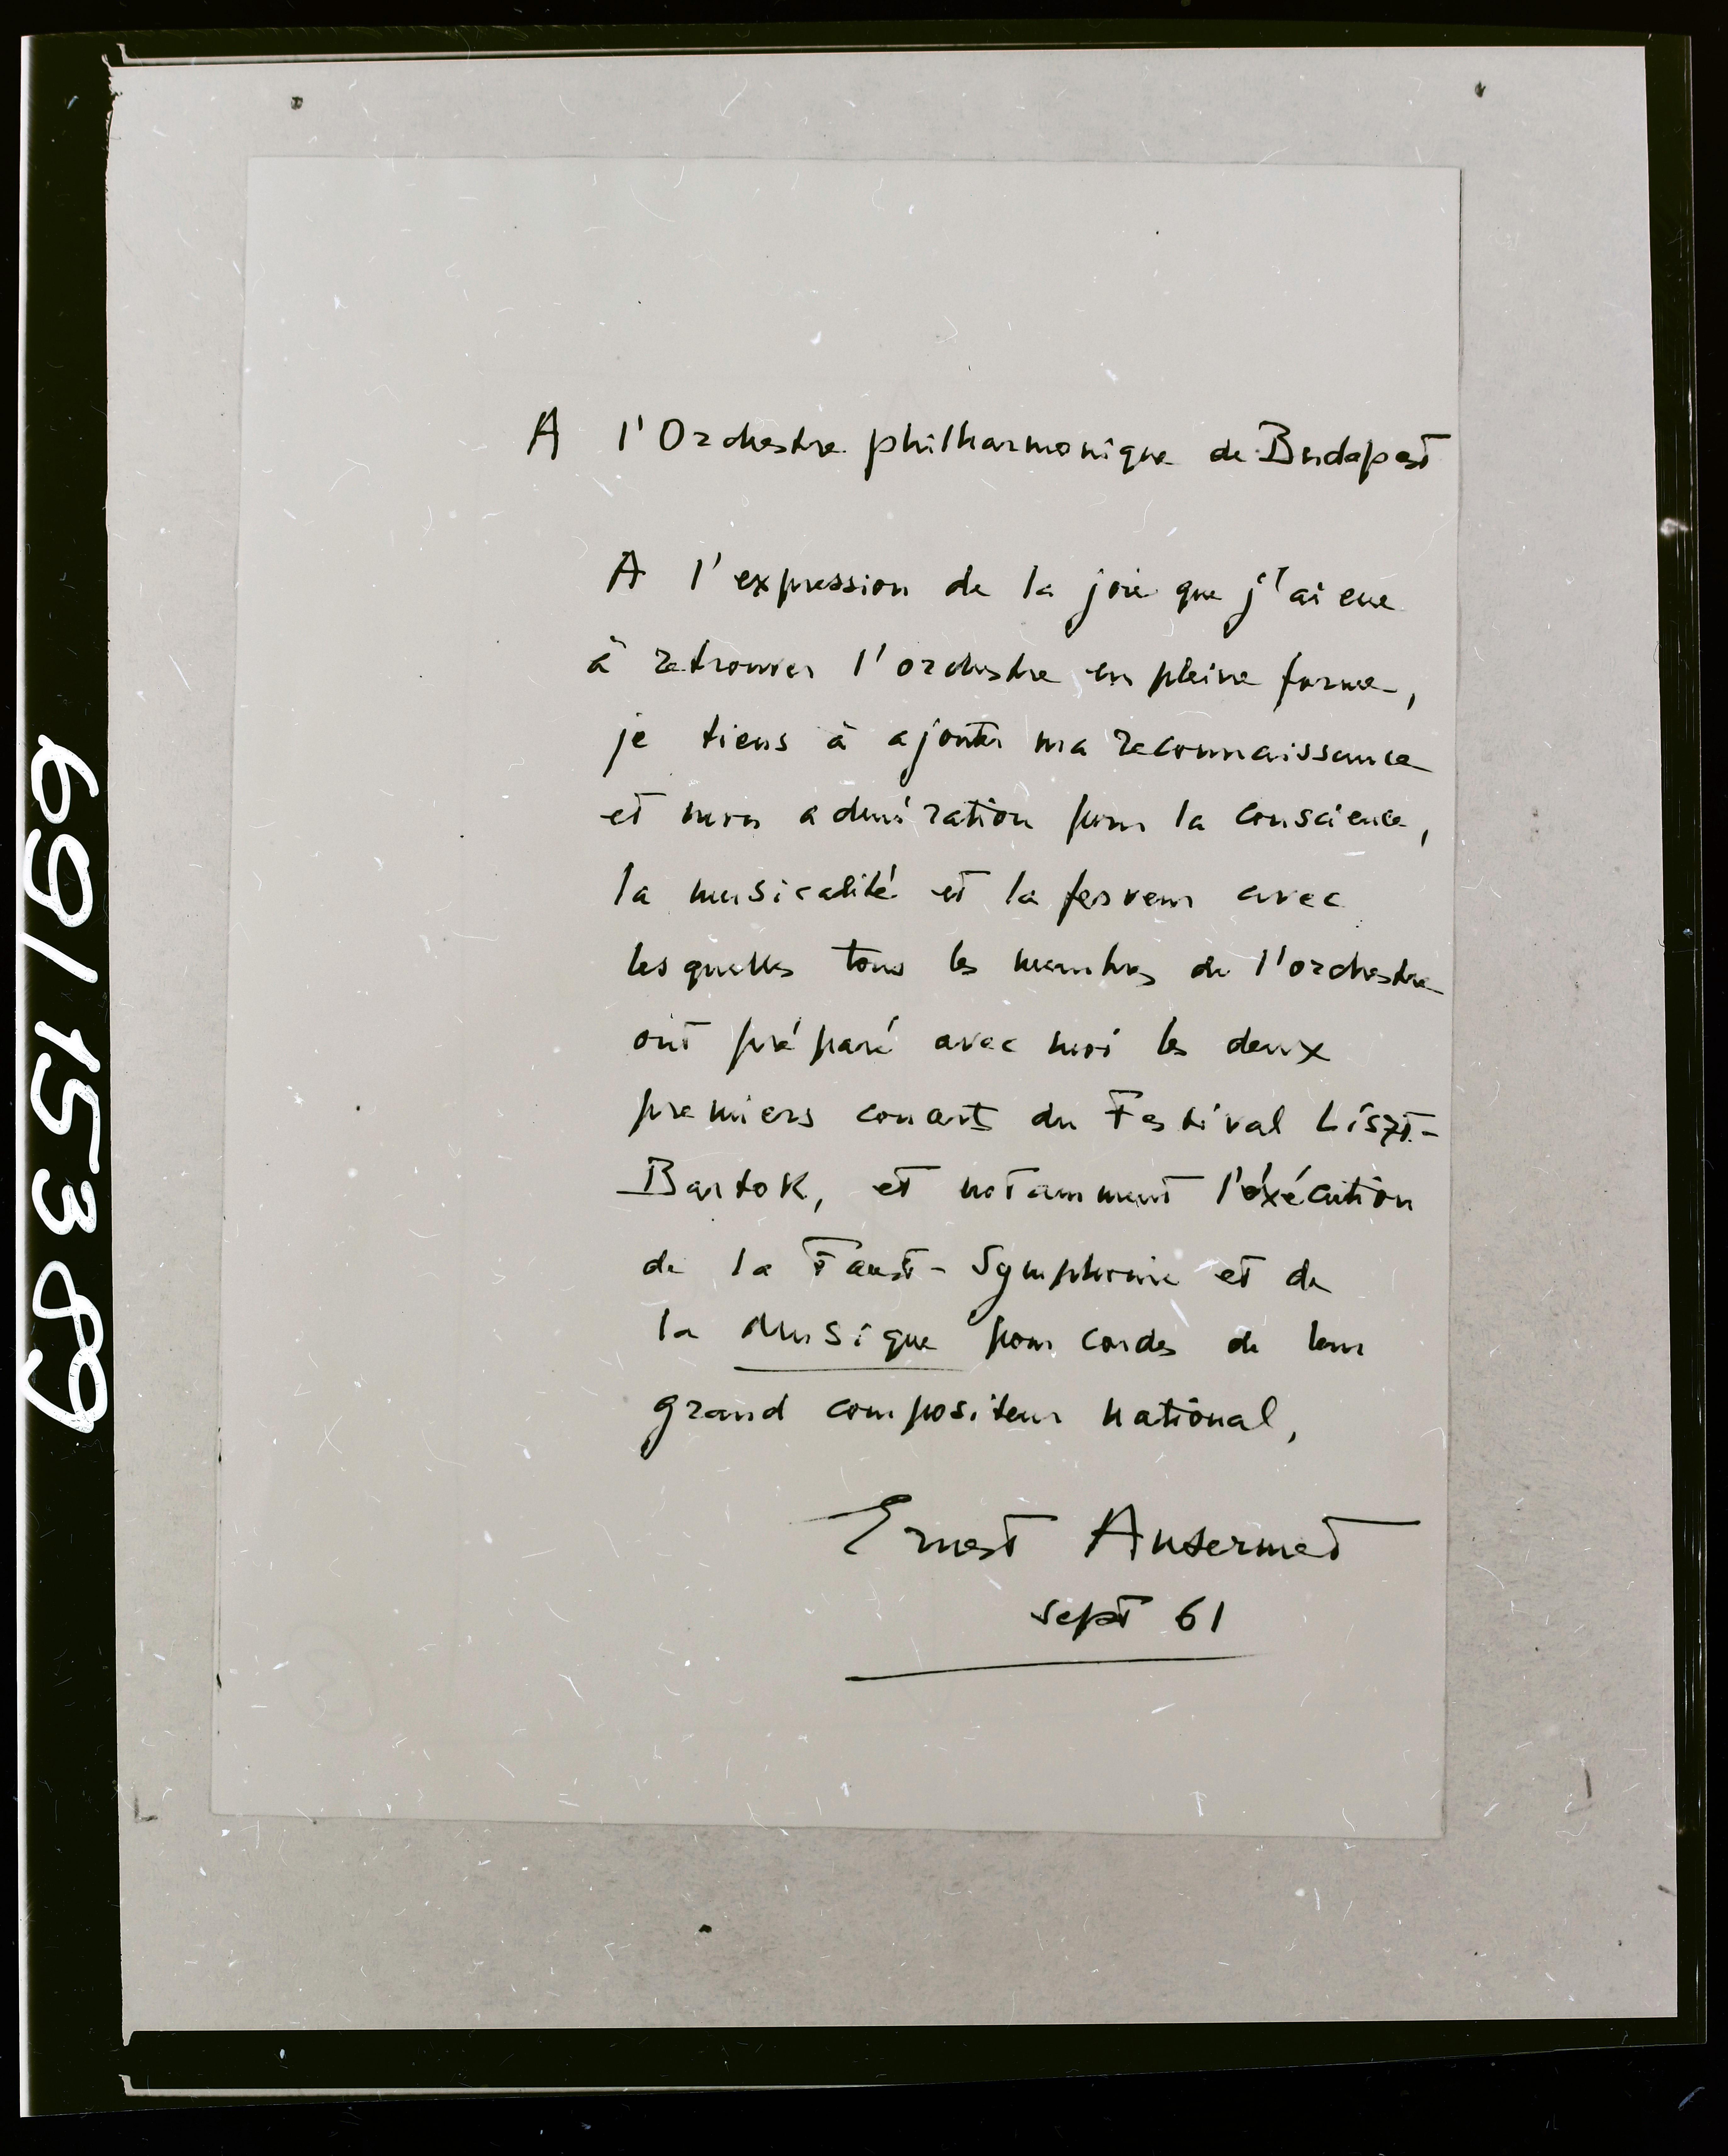 A l'Orchestre philharmonique de Budapest
A l'expression de la joie que j'ai eue
à retrouver l'orchestre en pleine forme,
je tiens à ajouter ma reconnaissance
et mon admiration pour la conscience,
la musicalité et la ferveur avec
lesquelles tous les membres de l'orchestre
ont préparé avec moi les deux
premiers concerts du Festival Liszt-
Bartok, et notamment l'éxécution
de la Faust-Symphonie et de
la Musique pour cordes de leur
grand compositeur national,
Ernest Ansermet
sept 61
69/15389